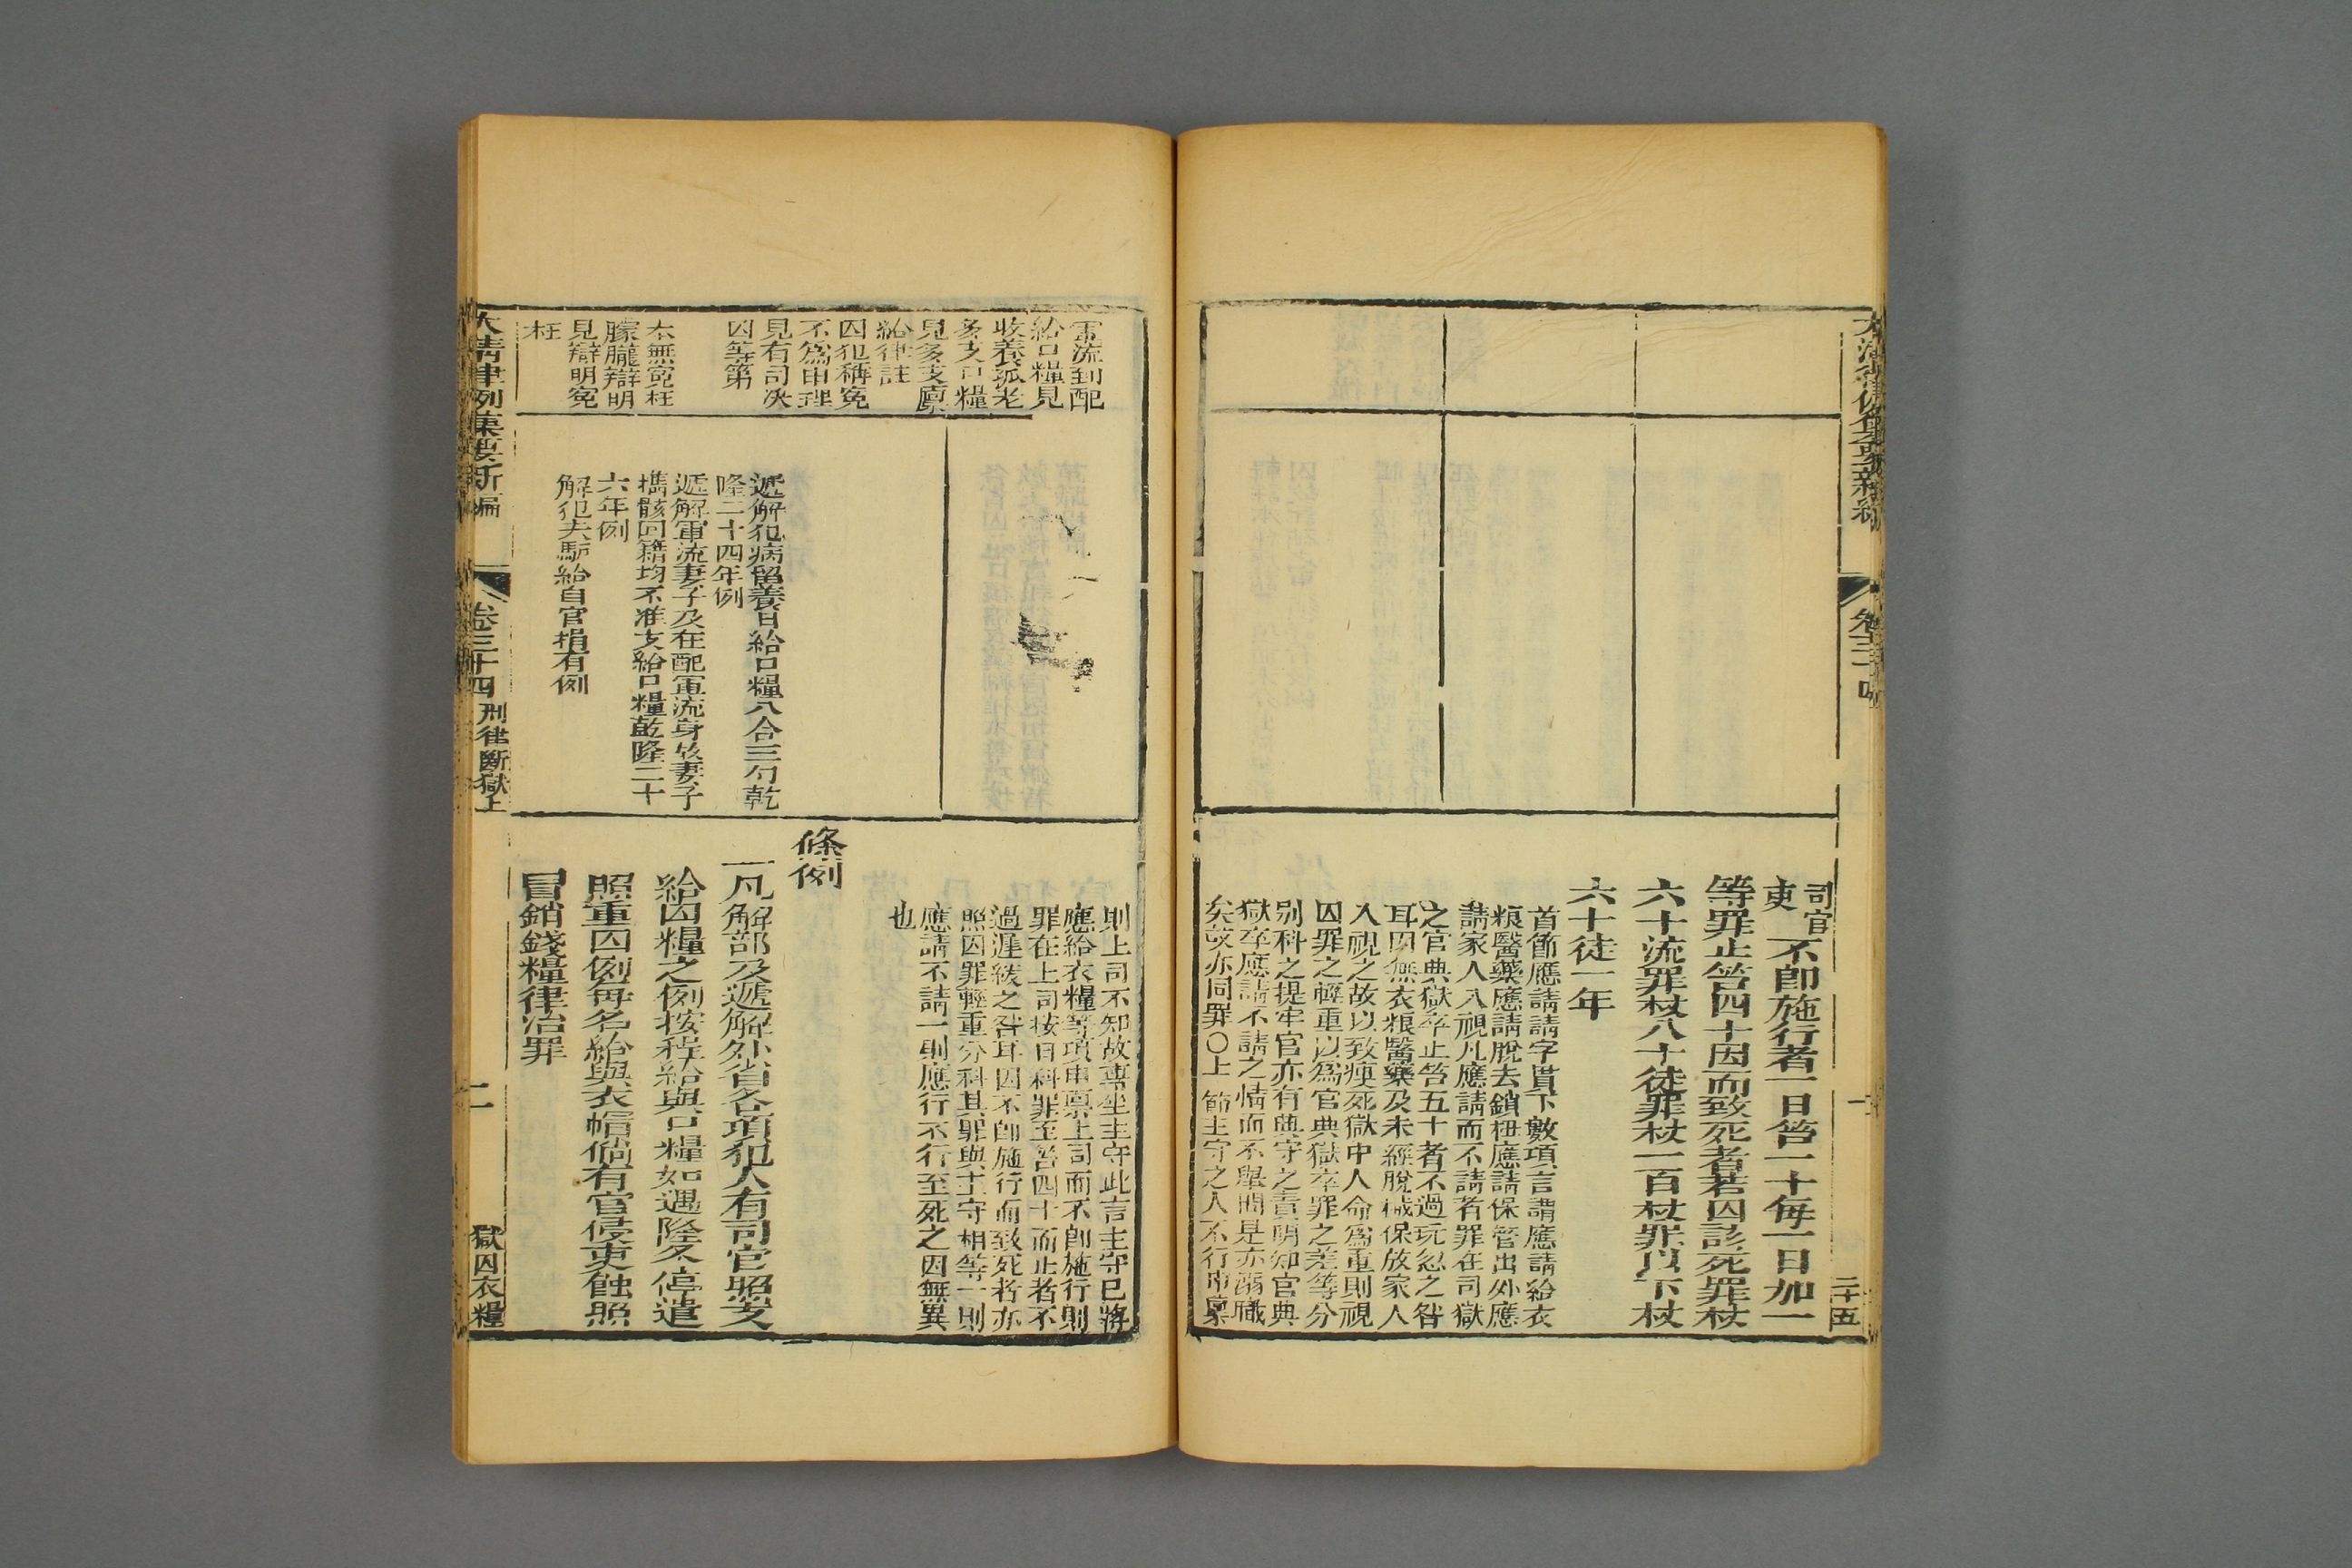 大清律例集要新編
卷三十四
一
二十五
司官
吏
不卽施行者一日笞一十每一日加一
等罪止笞四十因而致死者若囚該死罪杖
六十流罪杖八十徒罪杖一百杖罪以下杖
六十徒一年
首節應請請字貫下數項言謂應請給衣
粮醫藥應請脫去鎖杻應請保管出外應
請家人入視凡應請而不請者罪在司獄
之官典獄卒止笞五十者不過玩忽之咎
耳因無衣粮醫藥及未經脫械保放家人
入視之故以致瘐死獄中人命爲重則視
囚罪之輕重以爲官典獄卒罪之差等分
別科之提牢官亦有典守之責明知官典
獄卒應請不請之情而不舉問是亦溺職
矣故亦同罪○上節主守之人不行申稟
軍流到配
給口糧見
收養孤老
多支口糧
見多支廩
給律註
囚犯稱冤
不爲申理
見有司决
囚等第
本無冤枉
朦朧辯明
見辯明冤
枉
遞解犯病留養日給口糧八合三勺乾
隆二十四年例
遞解軍流妻子及在配軍流身故妻子
擕骸回籍均不准支給口糧乾隆二十
六年例
解犯夫馿給自官捐有例
則上司不知故專坐主守此言主守已將
應給衣糧等項申稟上司而不卽施行則
罪在上司按日科罪至笞四十而止者不
過遲緩之咎耳因不卽施行而致死者亦
照囚罪輕重分科其罪與主守相等一則
應請不請一則應行不行至死之因無異
也
條例
一凡解部及遞解外省各項犯人有司官照支
給囚糧之例按程給與口糧如遇隆冬停遣
照重囚例每名給與衣帽倘有官侵吏蝕照
冒銷錢糧律治罪
大清律例集要新編
卷三十四
刑律斷獄上
二
獄囚衣糧